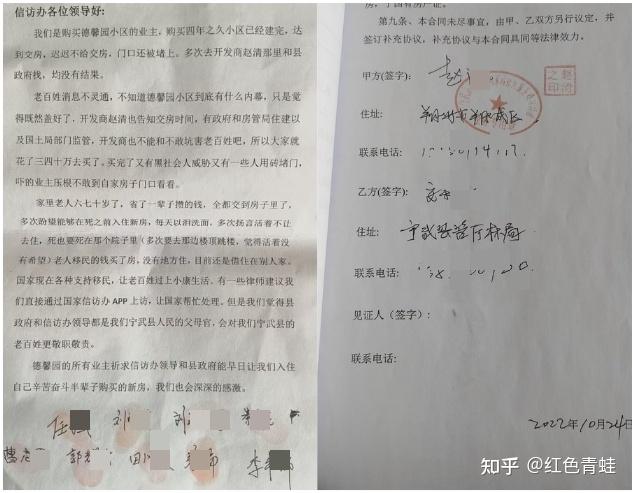 信访办各位领导好:
我们是购买德馨园小区的业主，购买四年之久小区已经建完，达
到交房，迟迟不给交房，门口还被堵上。多次去开发商赵清那里和县
政府找，均没有结果。
老百姓消息不灵通，不知道德馨园小区到底有什么内幕，只是觉
得既然盖好了、开发商赵清也告知交房时间，有政府和房管局住建以
及国土局部门监管，开发商也不能和不敢坑害老百姓吧，所以大家就
花了三四十万去买了。买完了又有黑社会人威胁又有一些人用砖堵门，
吓的业主压根不敢到自家房子门口看看。
家里老人六七十岁了，省了一辈子攒的钱，全都交到房子里了。
多次盼望能够在死之前入住新房，每天以泪洗面，多次扬言活着不让
去住，死也要死在那个院子里（多次要去那边楼顶跳楼，觉得活着没
有希望）老人移民的钱买了房，没有地方住，目前还是借住在别人家。
国家现在各种支持移民，让老百姓过上小康生活。有一些律师建议我
们直接通过国家信访办 APP 上访，让国家帮忙处理。但是我们觉得县
政府和信访办领导都是我们宁武县人民的父母官，会对我们宁武县的
老百姓更敬职敬责。
德馨园的所有业主祈求信访办领导和县政府能早日让我们入住
自己辛苦奋斗半辈子购买的新房，我们也会深深的感激。
任
刘
曹
郭
田
李
第九条、本合同未尽事宜，由甲、乙双方另行议定，并
签订补充协议，补充协议与本合同具同等法律效力。
甲方(签字):
住址:
联系电话:
乙方(签字):
住址: 宁武县
联系电话:
见证人（签字）:
联系电话:
2022年10月24日
知乎 @红色青蛙